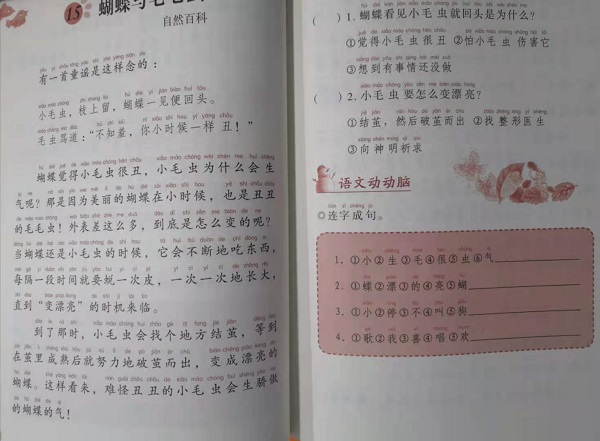 15 蝴蝶与毛毛虫
自然百科
有一首童谣是这样念的：
小毛虫，枝上留，蝴蝶一见便回头。
毛虫骂道：“不知羞，你小时候一样丑！”
蝴蝶觉得小毛虫很丑，小毛虫为什么会生
气呢？那是因为美丽的蝴蝶在小时候，也是丑丑
的毛毛虫！外表差这么多，到底是怎么变的呢？
当蝴蝶还是小毛虫的时候，它会不断地吃东西，
每隔一段时间就要蜕一次皮，一次一次地长大，
直到“变漂亮”的时机来临。
到了那时，小毛虫会找个地方结茧，等到
在茧里成熟后就努力地破茧而出，变成漂亮的
蝴蝶。这样看来，难怪丑丑的小毛虫会生骄傲
的蝴蝶的气！
（ ）1.蝴蝶看见小毛虫就回头是为什么？
①觉得小毛虫很丑 ②怕小毛虫伤害它
③想到有事情还没做
（ ）2.小毛虫要怎么变漂亮？
①结茧，然后破茧而出 ②找整形医生
③向神明祈求
语文动动脑
◎连字成句。
1.①小②生③毛④很⑤虫⑥气
2.①蝶②漂③的④亮⑤蝴
3.①小②停③不④叫⑤狗
4.①歌②我③喜④唱⑤欢